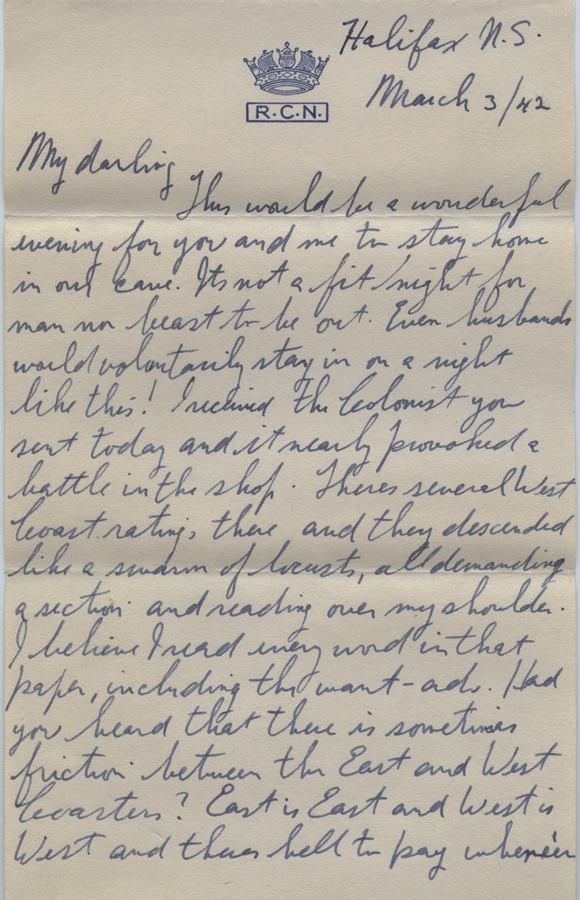 Halifax N.S.
R.C.N.
March 3/42
My darling
This would be a wonderful
evening for you and me to stay home
in our cave. Its not a fit night for
man nor beast to be out. Even husbands
would voluntarily stay in on a night
like this! I received the Colonist you
sent today and it nearly provoked a
battle in the shop. Theres several West
Coast ratings there and they descended
like a swarm of locusts, all demanding
a section and reading over my shoulder.
I believe I read every word in that
paper, including the want-ads. Had
you heard that there is sometimes
friction between the East and West
Coasters? East is East and West is
West and theres hell to pay whene'er